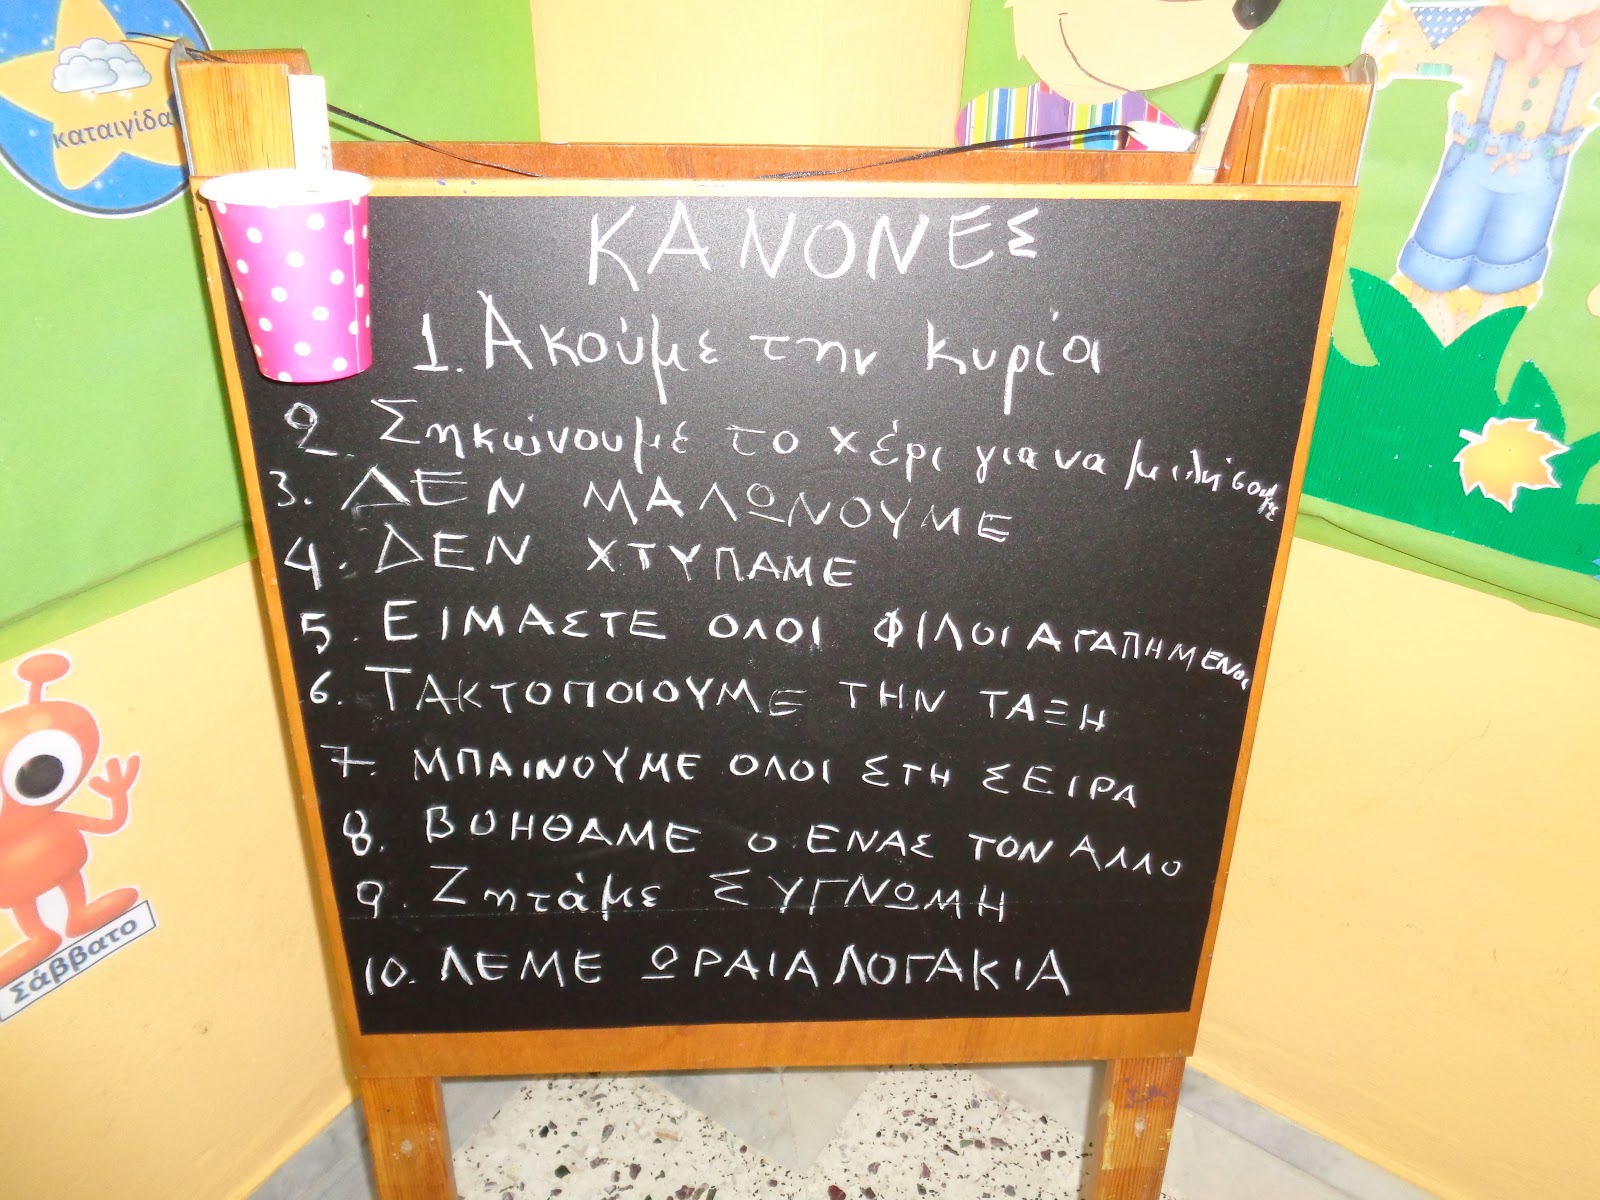 καταιγίδα
ΚΑΝΟΝΕΣ
1. Ακούμε την κυρία
2. Σηκώνουμε το χέρι για να μιλήσουμε
3. ΔΕΝ ΜΑΛΩΝΟΥΜΕ
4. ΔΕΝ ΧΤΥΠΑΜΕ
5. ΕΙΜΑΣΤΕ ΟΛΟΙ ΦΙΛΟΙ ΑΓΑΠΗΜΕΝΟΙ
6. ΤΑΚΤΟΠΟΙΟΥΜΕ ΤΗΝ ΤΑΞΗ
7. ΜΠΑΙΝΟΥΜΕ ΟΛΟΙ ΣΤΗ ΣΕΙΡΑ
8. ΒΟΗΘΑΜΕ Ο ΕΝΑΣ ΤΟΝ ΑΛΛΟ
9. Ζητάμε ΣΥΓΝΩΜΗ
10. ΛΕΜΕ ΩΡΑΙΑ ΛΟΓΑΚΙΑ
Σάββατο